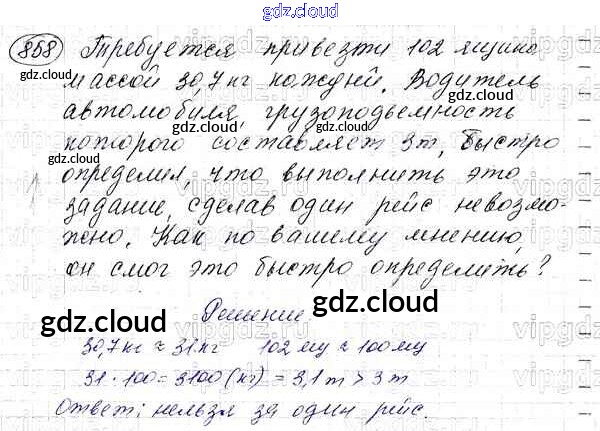 gdz.cloud
858 Требуется привезти 102 ящика
gdz.cloud gdz.cloud
массой 30,7 кг каждый. Водитель
автомобиля, грузоподьемность
gdz.cloud gdz.cloud
которого составляет 3т, быстро
определил, что выполнить это
задание, сделав один рейс невозмо-
жно. Как по вашему мнению,
он смог это быстро определить?
gdz.cloud
Решение
gdz.cloud
30,7 кг ≈ 31 кг 102 ящ ≈ 100 ящ
31 · 100 = 3100 (кг) = 3,1 т > 3 т
gdz.cloud
Ответ: нельзя за один рейс.